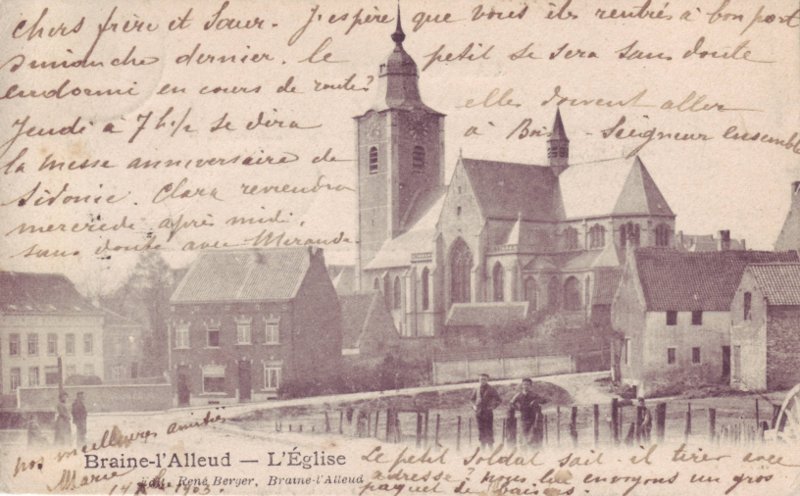 Chers frère et Sœur. J'espère que vous êtes rentrés à bon port
dimanche dernier. le petit se sera sans doute
endormi en cours de route?
elles doivent aller
à Bois-Seigneur ensemble
Jeudi à 7h½ se dira
la messe anniversaire de
Sidonie. Clara reviendra
mercredi après midi.
sans doute avec
nos meilleures amitiés
Marie
Braine-l'Alleud — L'Église
Edit. René Berger, Braine-l'Alleud
1903.
Le petit Soldat sait il tirer avec
adresse? Nous lui envoyons un gros
paquet de baisers.